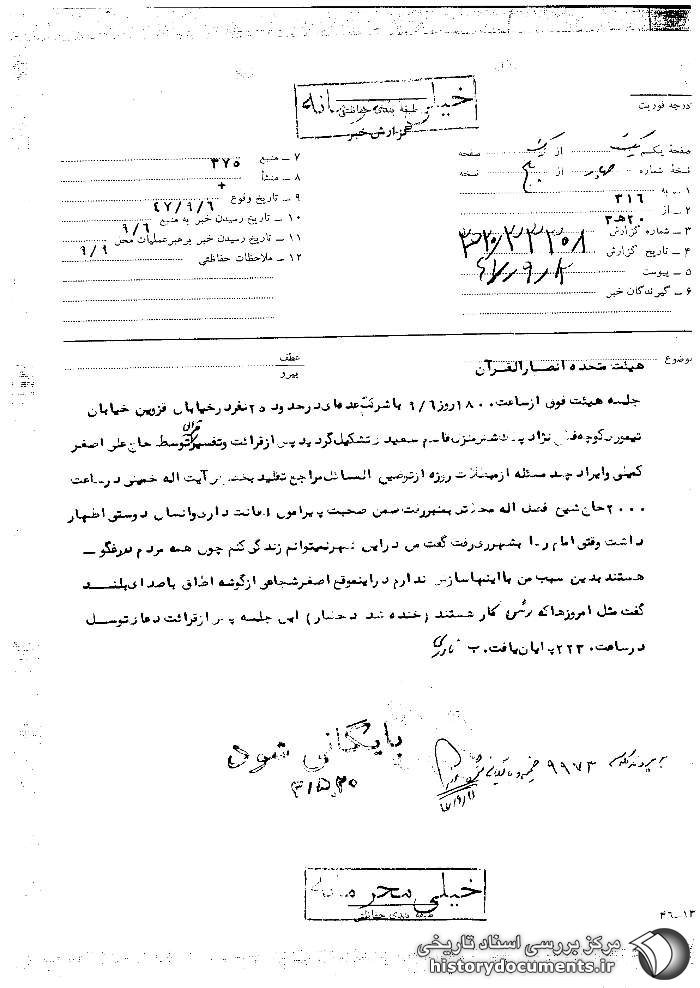 خیلی محرمانه
طبقه بندی حفاظتی
گزارش خبر
درجه فوریت
صفحه یکم یک از یک صفحه
نسخه شماره چهار از پنج نسخه
۱ – به ۳۱۶
۲ – از ۲۰هـ۳
۳ – شماره گزارش
۴ – تاریخ گزارش
۵ – پیوست
۶ – گیرندگان خبر
۷ – منبع ۳۷۵
۸ – منشأ
۹ – تاریخ وقوع ۴۷/۹/۶
۱۰ – تاریخ رسیدن خبر به منبع ۹/۶
۱۱ – تاریخ رسیدن خبر برهبرعملیات محل ۹/۹
۱۲ – ملاحظات حفاظتی
موضوع هیئت متحده انصارالقرآن
عطف
پیرو
جلسه هیئت فوق ازساعت ۱۸۰۰روز ۹/۶ باشرکت عده‌ای درحدود ۲۵نفردرخیابان قزوین خیابان
تیموری کوچه نژاد منزل قاسم سعید تشکیل گردید پس ازقرائت وتفسیر قرآن توسط حاج علی اصغر
وایراد چند مسئله از روزه ازتوضیح المسائل مراجع تقلید آیت اله خمینی درساعت
۲۰۰۰حاج شیخ فضل اله بمنبررفت ضمن صحبت پیرامون دوستی اظهار
داشت وقتی امام رضا بشهرری رفت گفت من دراین شهرنمیتوانم زندگی کنم چون همه مردم دروغگو –
هستند بدین سبب من بااینهاسازش ندارم دراینموقع اصغرشجاعی ازگوشه اطاق باصدای بلند
گفت مثل امروزهاکه رئیس کار هستند (خنده شد حضار) این جلسه پس ازقرائت دعای توسل
درساعت ۲۲۳۰ پایان یافت. ب
بایگانی شود
۳۱۵۳۰
۹۹۷۳
خیلی محرمانه
طبقه بندی حفاظتی
۴۶-۱۳
مرکز بررسی اسناد تاریخی
historydocuments.ir